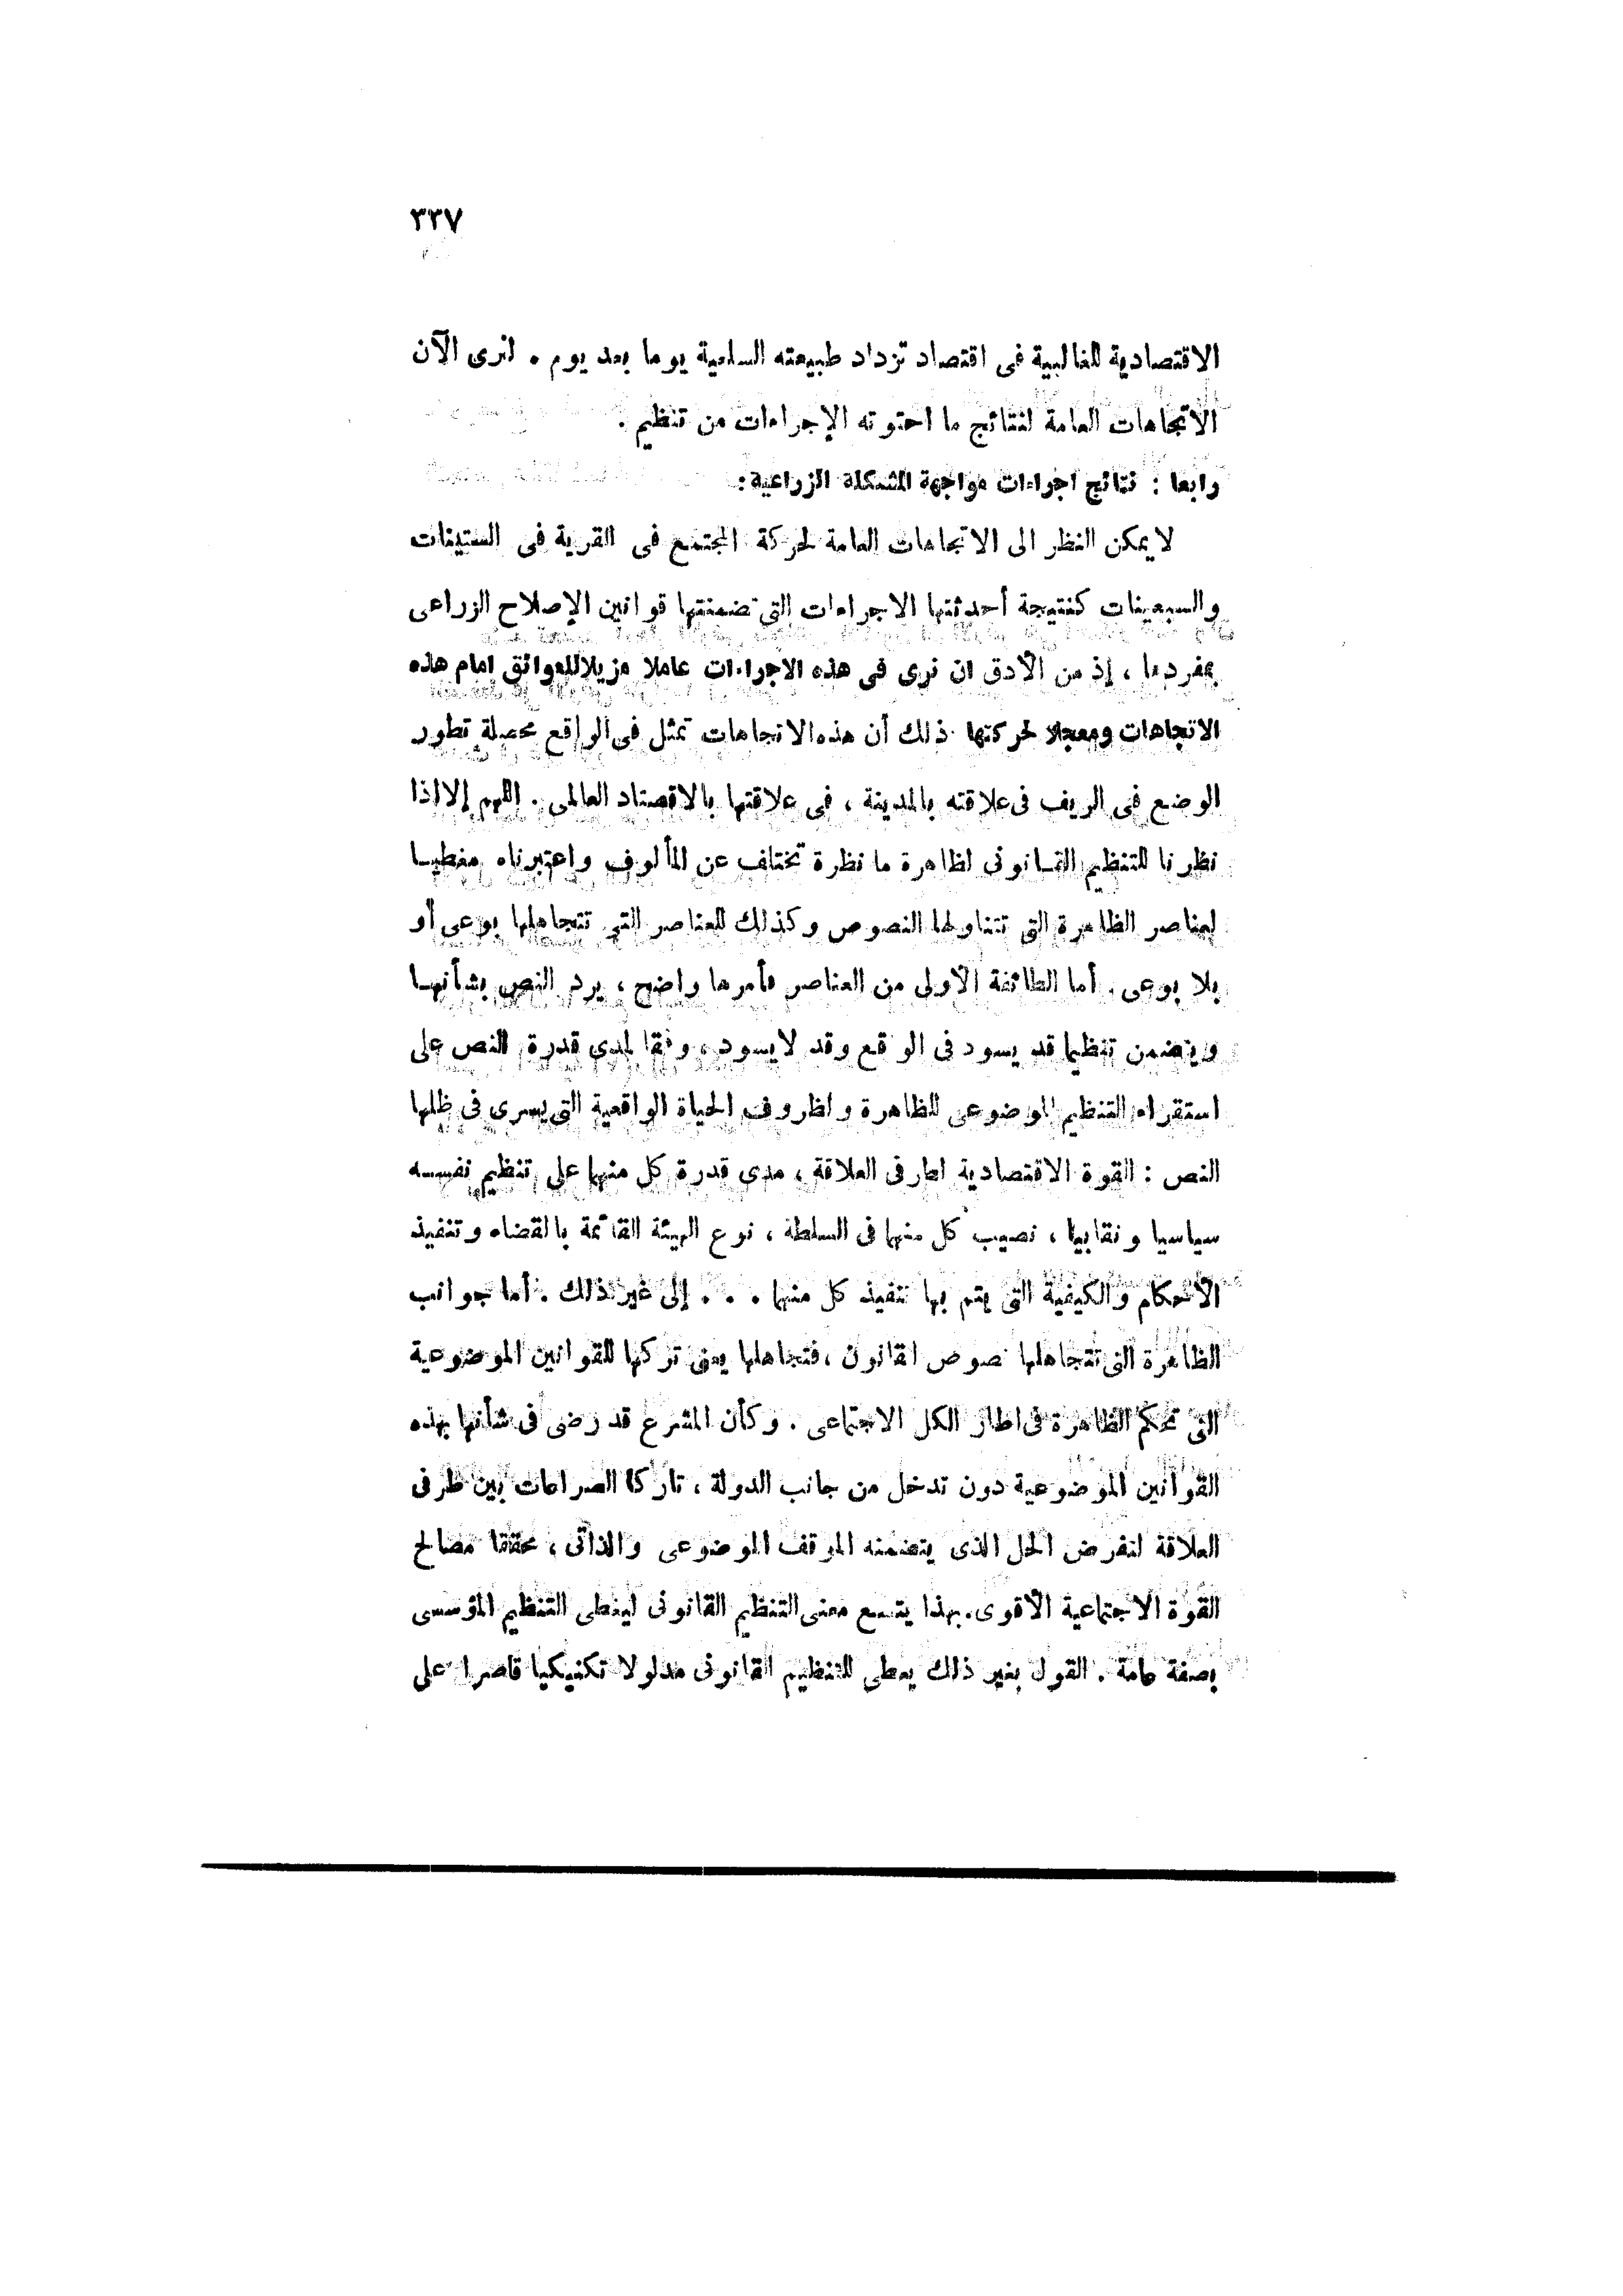 ٣٣٧
الاقتصادية للغالبية فى اقتصاد تزداد طبيعته السلعية يوما بعد يوم . لنرى الآن
الاتجاهات العامة لنتائج ما احتوته الإجراءات من تنظيم .
رابعا : نتائج اجراءات مواجهة المشكلة الزراعية :
لا يمكن النظر الى الاتجاهات العامة لحركة المجتمع فى القرية فى الستينات
والسبعينات كنتيجة أحدثتها الاجراءات التى تضمنتها قوانين الإصلاح الزراعى
بمفردها ، إذ من الأدق ان نرى فى هذه الاجراءات عاملا مزيلا للعوائق امام هذه
الاتجاهات ومعجلا لحركتها . ذلك أن هذه الاتجاهات تمثل فى الواقع محصلة تطور
الوضع فى الريف فى علاقته بالمدينة ، فى علاقتها بالاقصتاد العالمى . اللهم إلا إذا
نظرنا للتنظيم القانونى لظاهرة ما نظرة تختلف عن المألوف واعتبرناه مغطيا
لعناصر الظاهرة التى تتناولها النصوص وكذلك للعناصر التى تتجاهلها بوعى أو
بلا بوعى . أما الطائفة الأولى من العناصر فأمرها واضح ، يرد النص بشأنها
ويتضمن تنظيما قد يسود فى الواقع وقد لا يسود ، وفقا لمدى قدرة النص على
استقراء التنظيم الموضوعى للظاهرة ولظروف الحياة الواقعية التى يسرى فى ظلها
النص : القوة الاقتصادية لطرفى العلاقة ، مدى قدرة كل منهما على تنظيم نفسه
سياسيا ونقابيا ، نصيب كل منهما فى السلطة ، نوع الهيئة القائمة بالقضاء وتنفيذ
الأحكام والكيفية التى يتم بها تنفيذ كل منها . . . إلى غير ذلك . أما جوانب
الظاهرة التى تتجاهلها نصوص القانون ، فتجاهلها يعنى تركها للقوانين الموضوعية
التى تحكم الظاهرة فى اطار الكل الاجتماعى . وكأن المشرع قد رضى فى شأنها بهذه
القوانين الموضوعية دون تدخل من جانب الدولة ، تاركا الصراعات بين طرفى
العلاقة لتفرض الحل الذى يتضمنه الموقف الموضوعى والذاتى ، محققا مصالح
القوة الاجتماعية الأقوى . بهذا يتسع معنى التنظيم القانونى ليغطى التنظيم المؤسسى
بصفة عامة . القول بغير ذلك يعطى للتنظيم القانونى مدلولا تكنيكيا قاصرا على